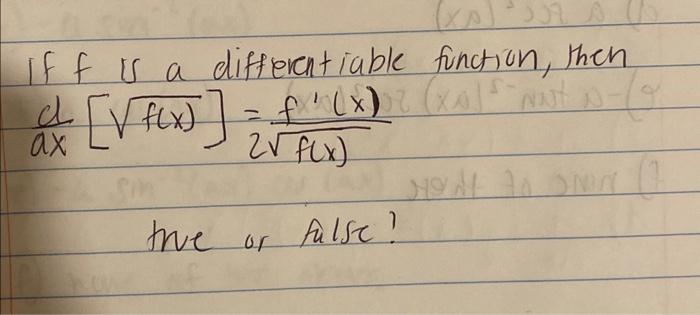 If f is a differentiable function, then
d/dx [√f(x)] = f'(x) / 2√f(x)
true or false?